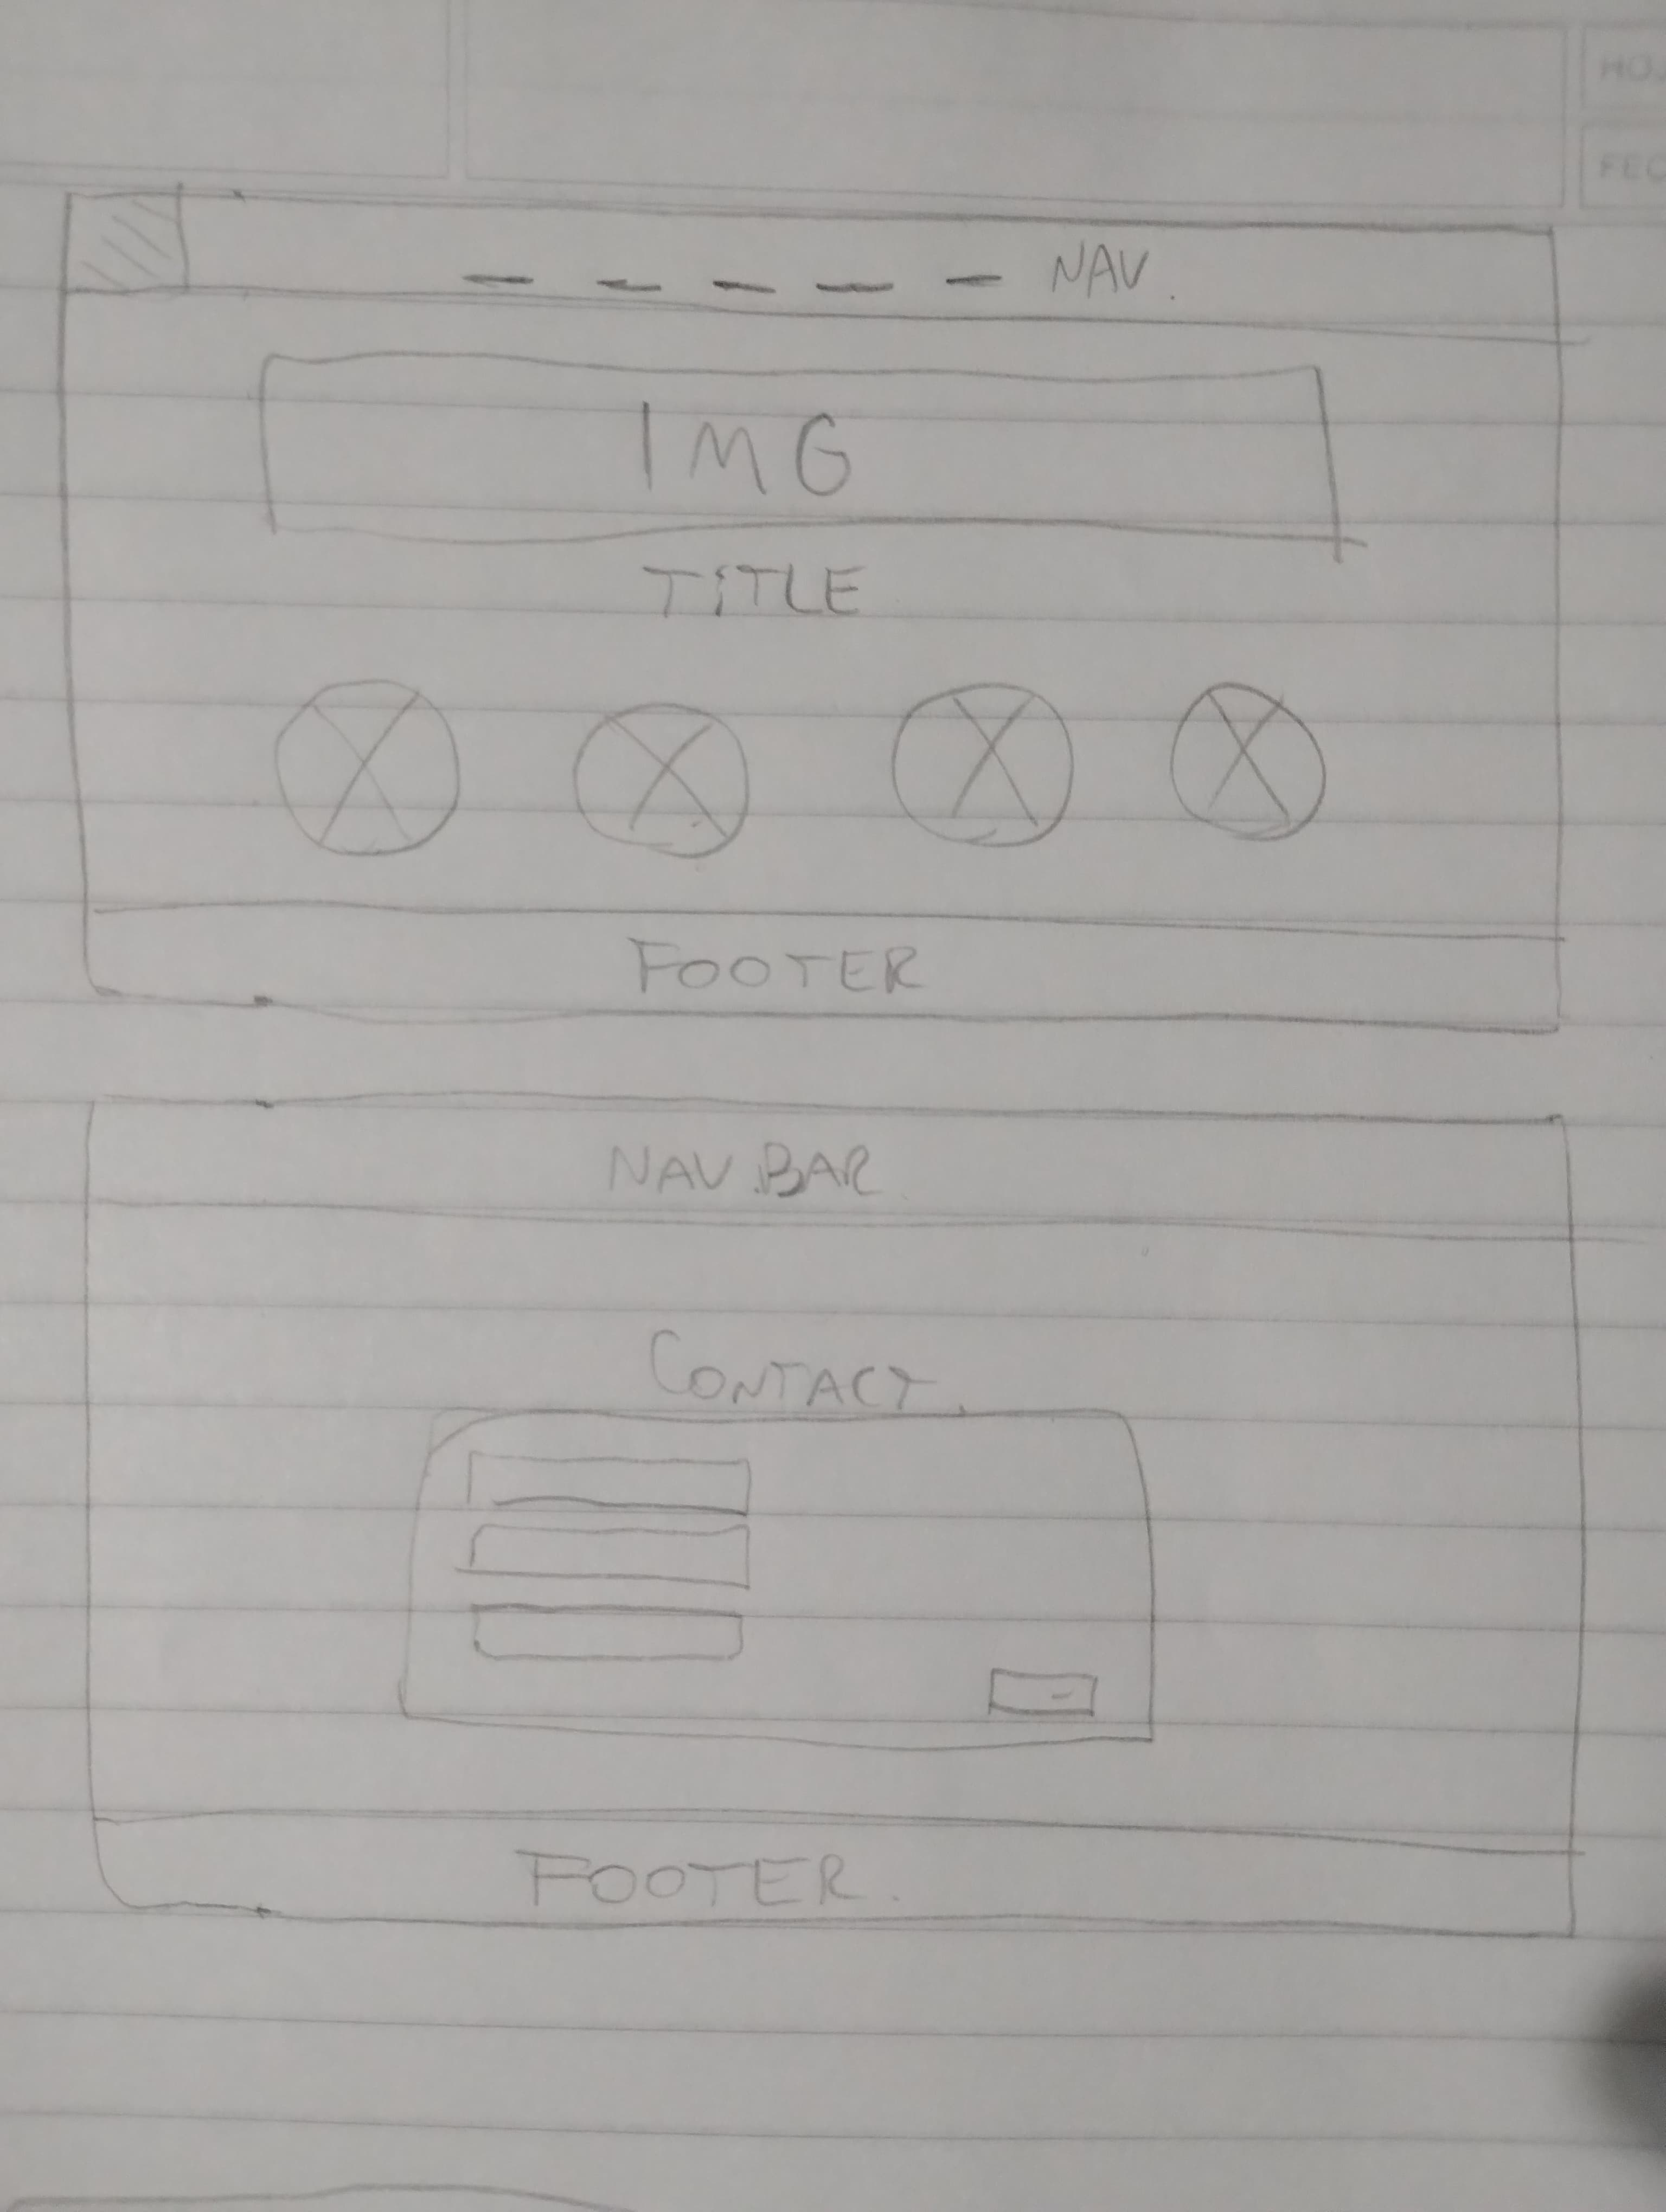 HOJ
FEC
NAV.
IMG
TITLE
FOOTER
NAV.BAR.
CONTACT.
FOOTER.